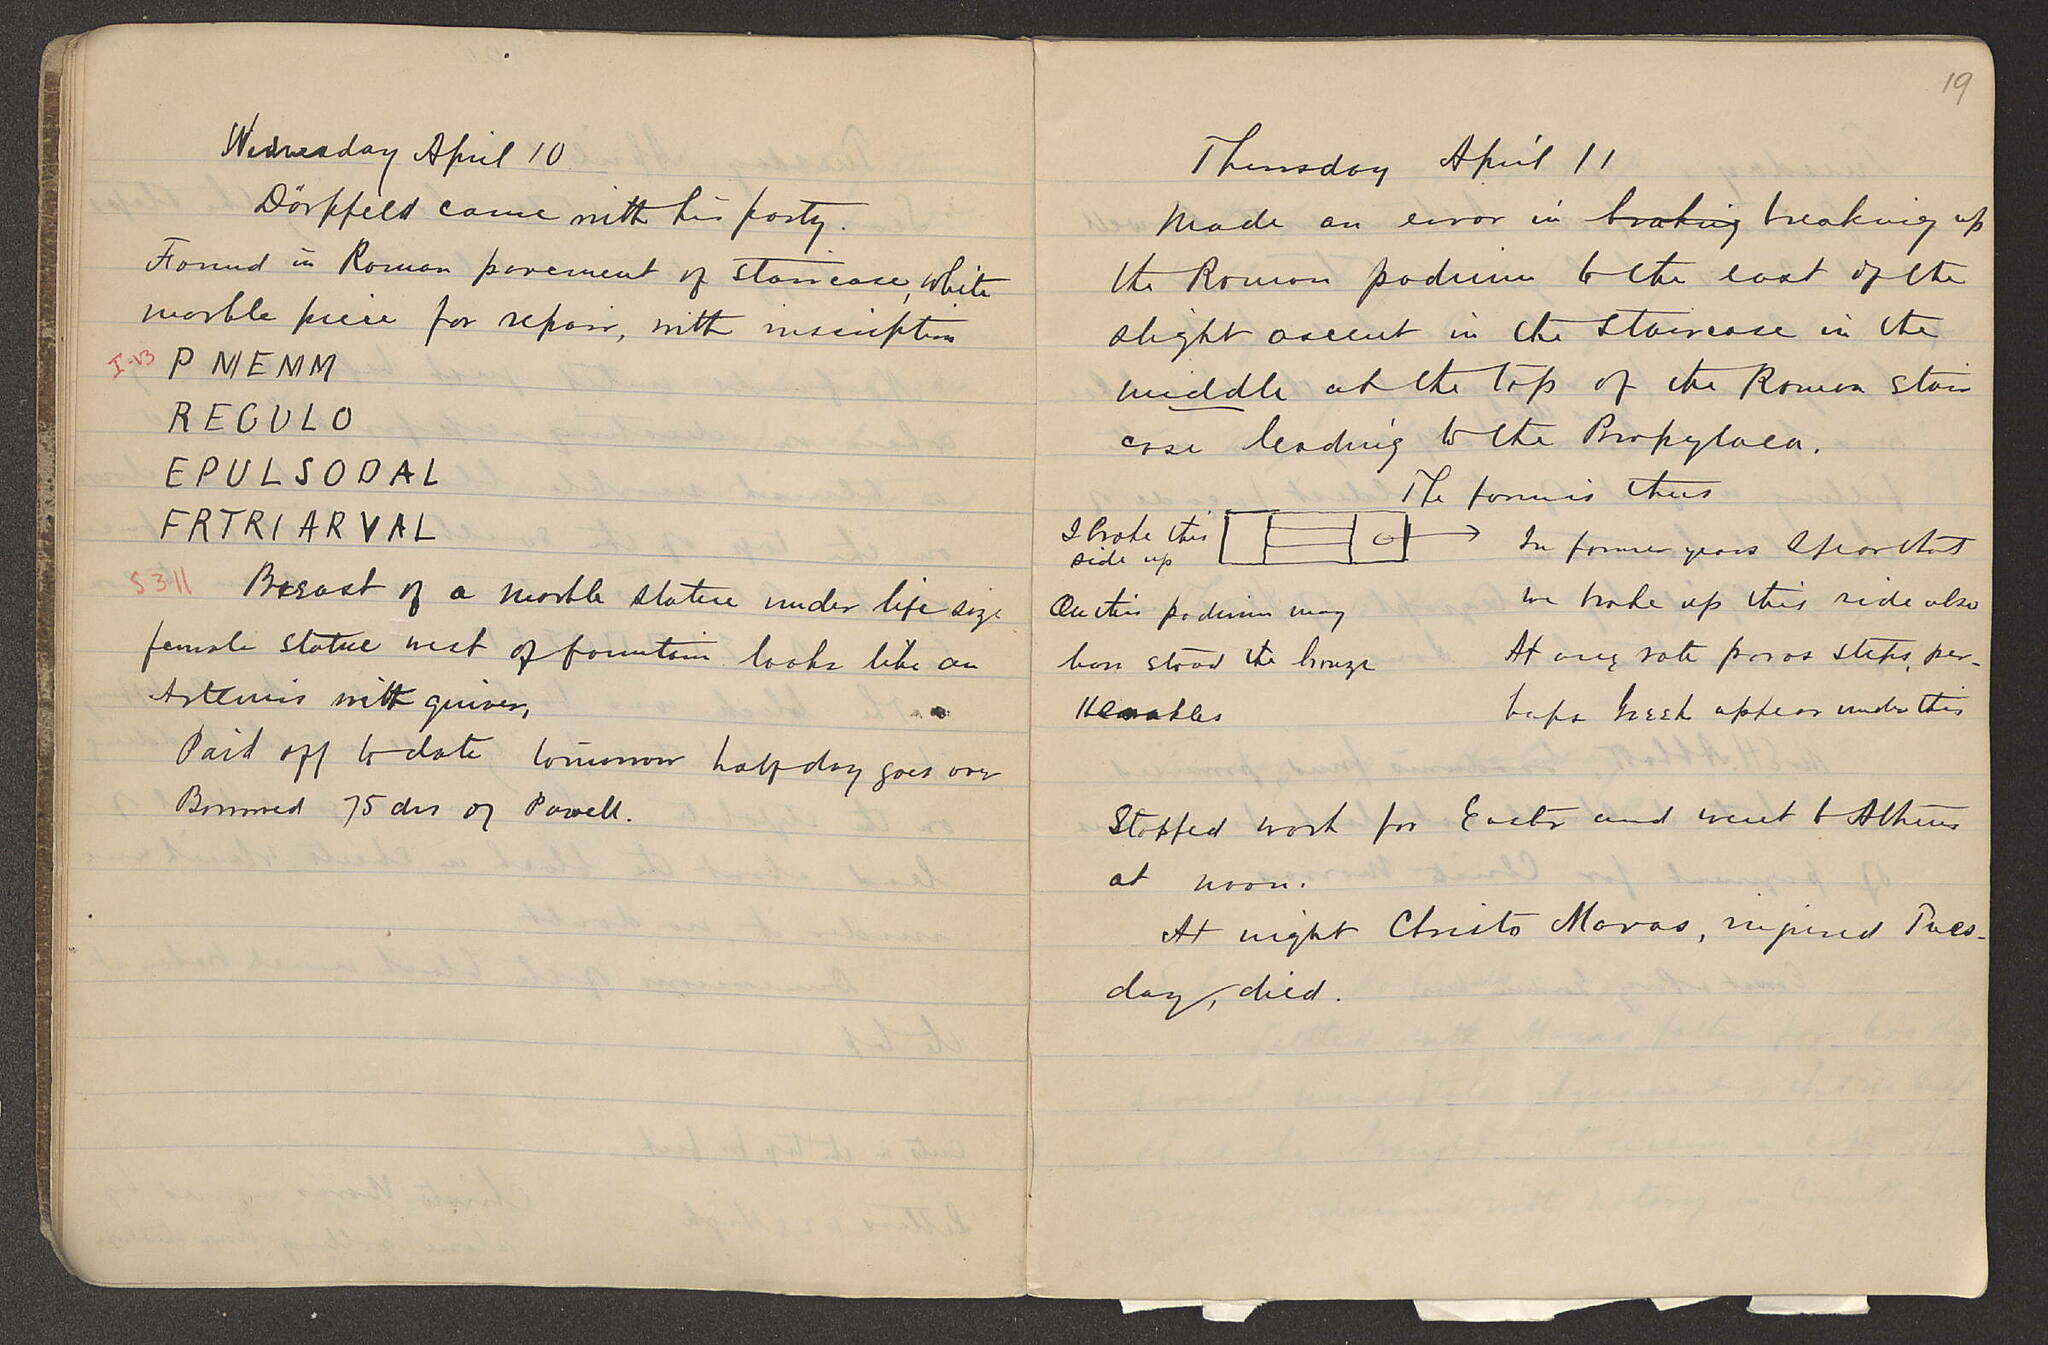 Wednesday April 10
Dörpfeld came with his party.
Found in Roman pavement of staircase, white
marble piece for repair, with inscription
I-v3 P MEMM
REGULO
EPULSODAL
FRTRI ARVAL
S 311 Breast of a marble statue under life size
female statue west of fountain looks like an
Artemis with quiver,
Paid off to date tomorrow half day goes over
Borrowed 75 drs of Powell.
19
Thursday April 11
Made an error in braking breaking up
the Roman podium to the east of the
slight ascent in the staircase in the
middle at the top of the Roman stair
case leading to the Propylaea.
The form is thus
I broke this
side up
On this podium may
have stood the bronze
Herakles
In former years I fear that
we broke up this side also
At any rate poros steps, per-
haps Greek appear under this
Stopped work for Easter and went to Athens
at noon.
At night Christo Moras, injured Tues-
day, died.